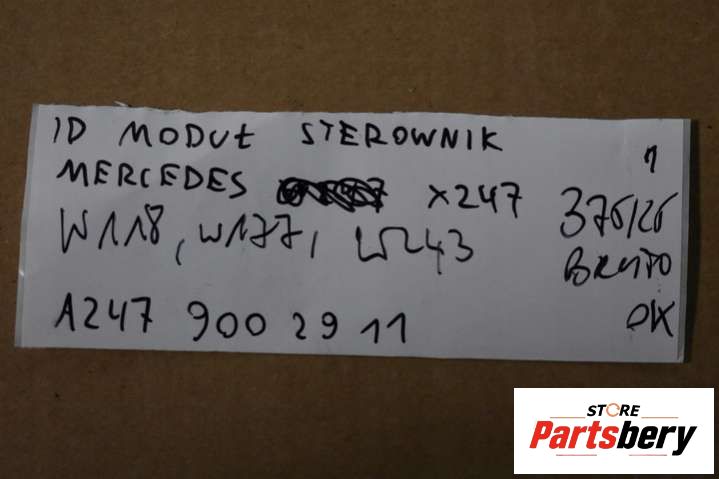 ID MODUŁ STEROWNIK
1
MERCEDES X247
376/26
W118, W177, W243
BRUTTO
A247 900 29 11
OK
STORE
Partsbery